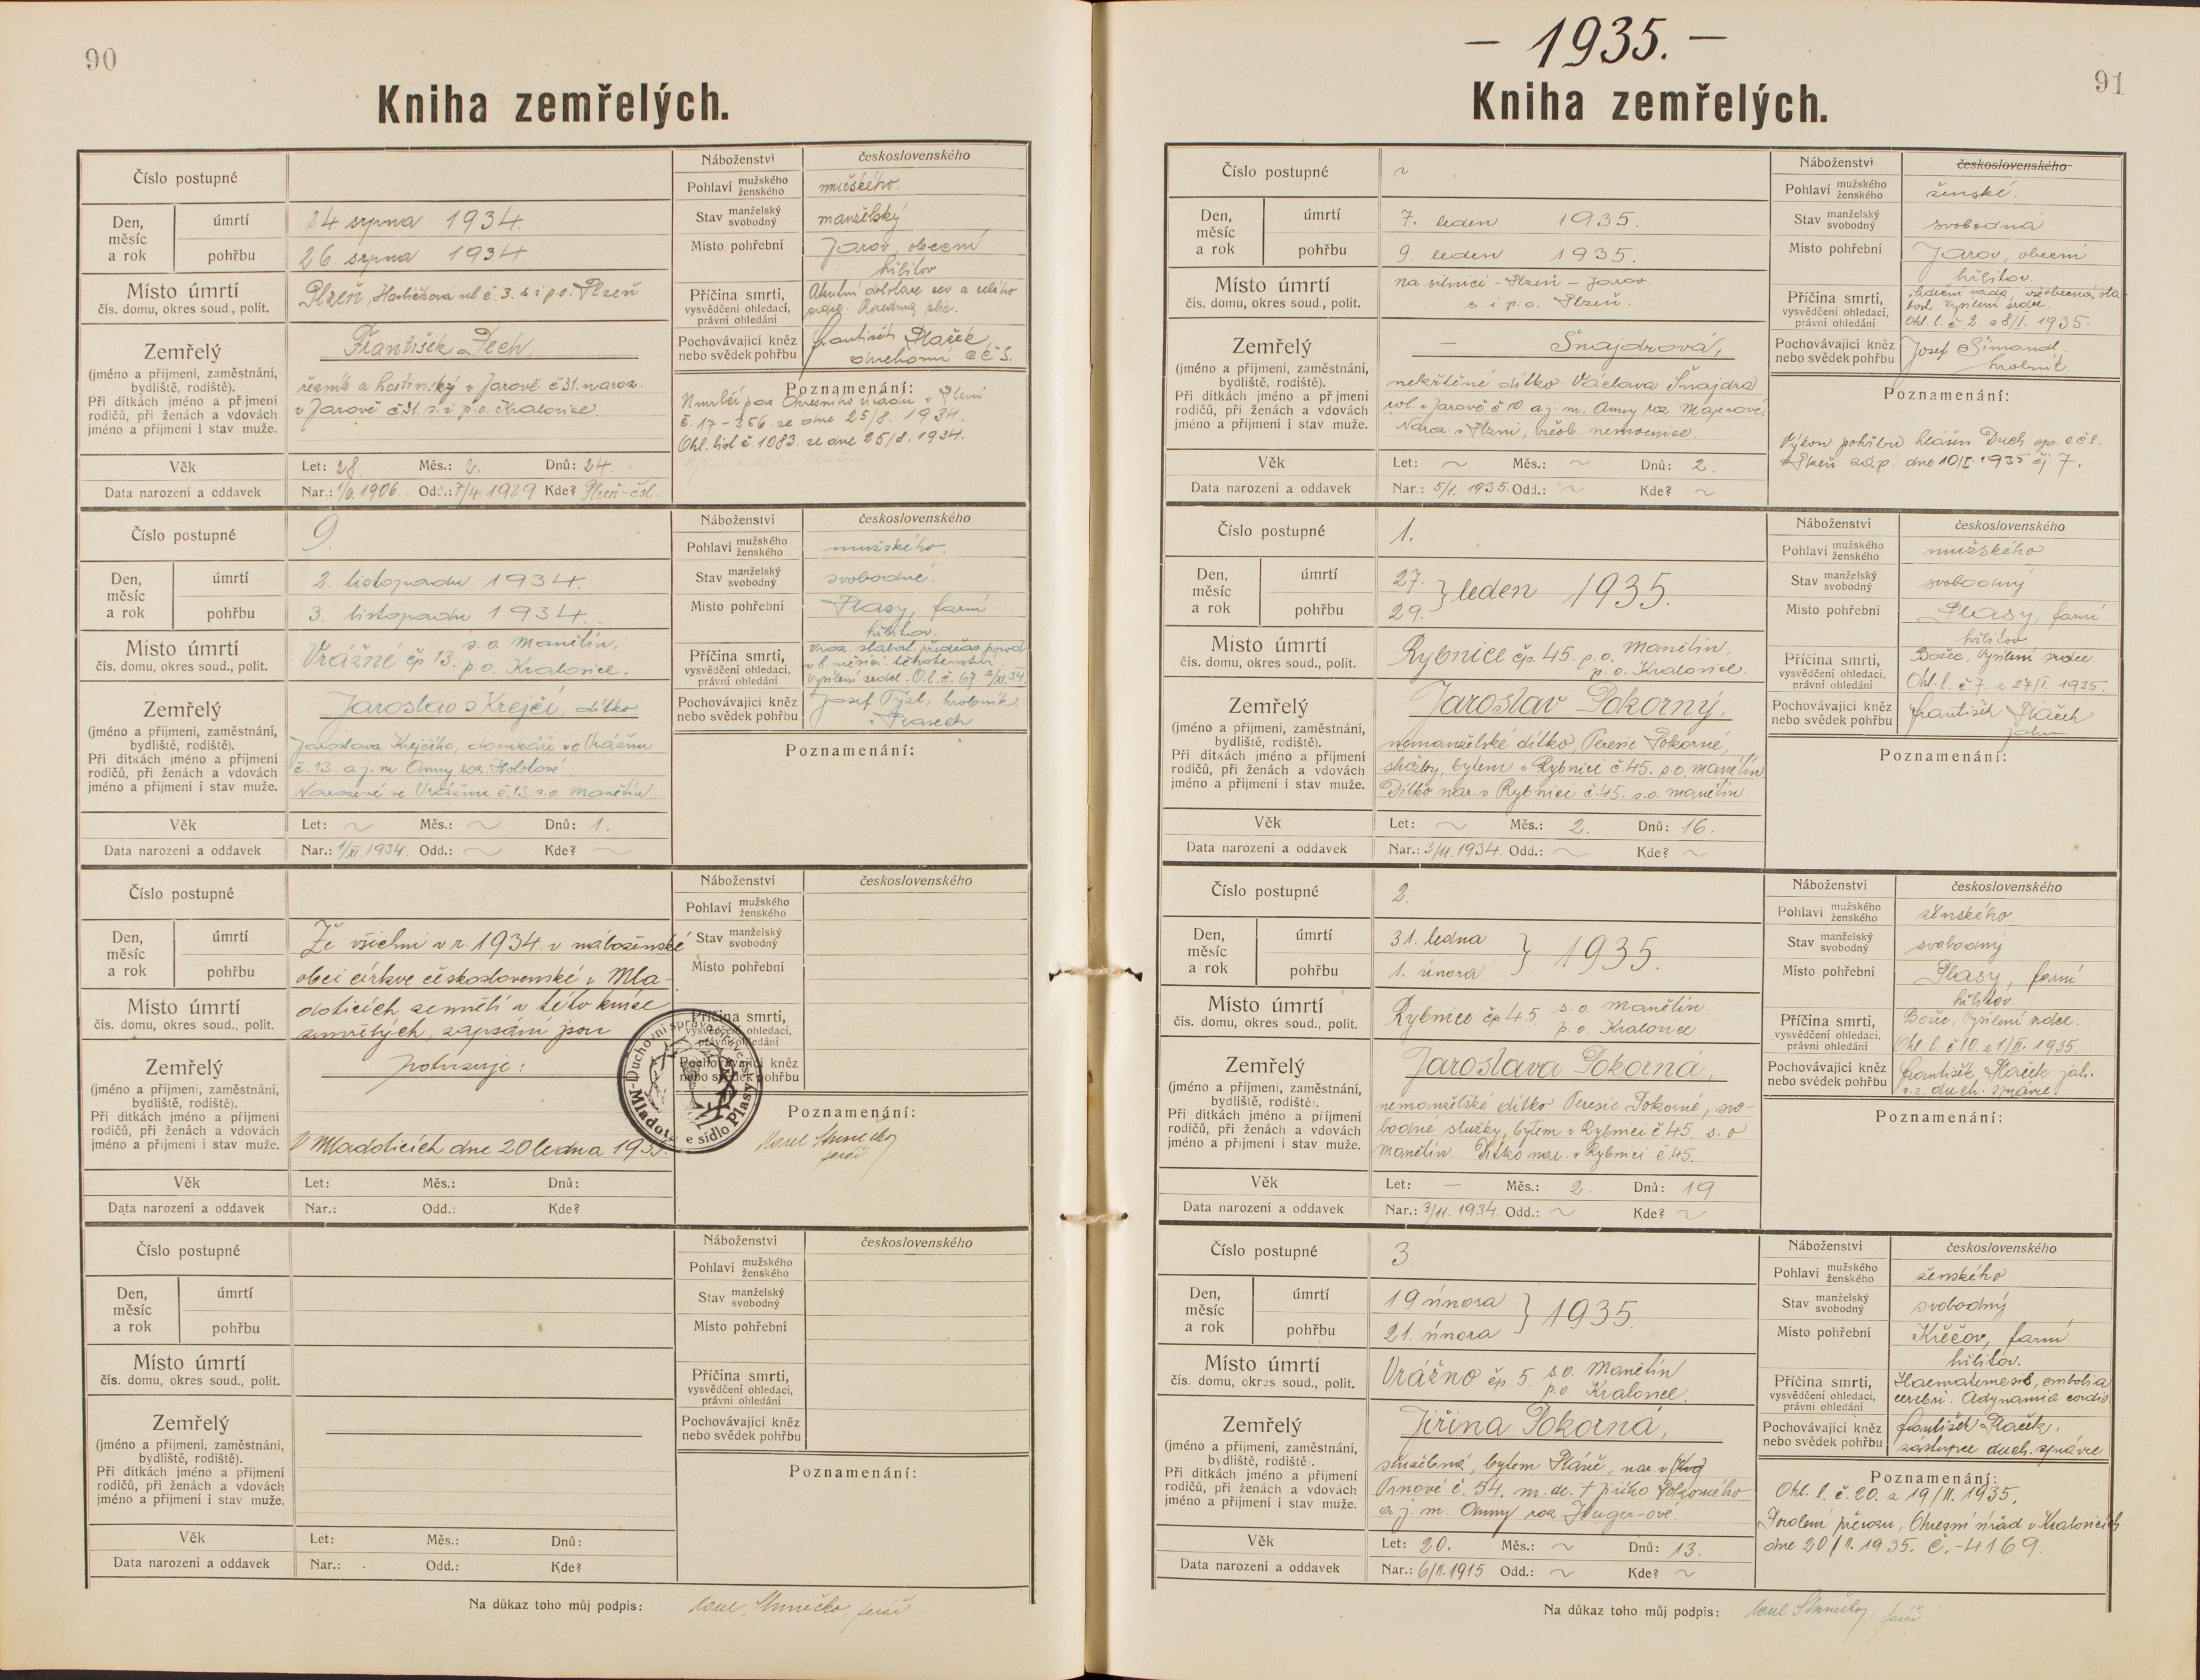 90
Kniha zemřelých.
Číslo postupné
Den, měsíc a rok
úmrtí
24 srpna 1934.
pohřbu
26. srpna 1934
Místo úmrtí
čís. domu, okres soud., polit.
Plzeň, Havlíčkova ul. č. 3. s. i p. o. Plzeň
Zemřelý
(jméno a příjmení, zaměstnání,
bydliště, rodiště).
Při dítkách jméno a příjmení
rodičů, při ženách a vdovách
jméno a příjmení i stav muže.
František Pech,
řezník a hostinský v Jarově č 31. naroz.
v Jarově č 31. s. i p. o. Kralovice.
Věk
Let: 28. Měs.: 2. Dnů: 24.
Data narození a oddavek
Nar.: 1/6. 1906. Od.: 7/4. 1929 Kde? Plzeň-čsl.
Náboženství
československého
Pohlaví mužského ženského
mužského.
Stav manželský svobodný
manželský
Místo pohřební
Jarov, obecní
hřbitov
Příčina smrti,
vysvědčení ohledací,
právní ohledání
srdce.
Pochovávající kněz
nebo svědek pohřbu
František Plaček,
duchovní c č s.
Poznamenání:
Okresního úřadu v Plzni
č. 17-356. ze dne 25/8. 1934.
Ohl. list č 1083. ze dne 25/8. 1934.
Číslo postupné
9.
Den, měsíc a rok
úmrtí
2. listopadu 1934.
pohřbu
3. listopadu 1934.
Místo úmrtí
čís. domu, okres soud., polit.
Vrážné čp. 13. s. o. Manětín,
p. o. Kralovice.
Zemřelý
(jméno a příjmení, zaměstnání,
bydliště, rodiště).
Při dítkách jméno a příjmení
rodičů, při ženách a vdovách
jméno a příjmení i stav muže.
Jaroslav Krejčí, dítko
Jaroslava Krejčího, domkáře ve Vrážnu
č. 13. a j. m. Anny roz. Holotové.
Narozené ve Vrážnu č. 13. s. o. Manětín.
Věk
Let: ~ Měs.: ~ Dnů: 1.
Data narození a oddavek
Nar.: 1/XI. 1934. Odd.: ~ Kde? ~
Náboženství
československého
Pohlaví mužského ženského
mužského.
Stav manželský svobodný
svobodné.
Místo pohřební
Plasy, farní
hřbitov.
Příčina smrti,
vysvědčení ohledací,
právní ohledání
Vroz. slabost. předčas porod
měsíci těhotenství
Vysílení srdce. O. l. č. 67. 2/XI. 34.
Pochovávající kněz
nebo svědek pohřbu
Josef Týbl, hrobník
v Plasech
Poznamenání:
Číslo postupné
Den, měsíc a rok
úmrtí
pohřbu
Místo úmrtí
čís. domu, okres soud., polit.
Zemřelý
(jméno a příjmení, zaměstnání,
bydliště, rodiště).
Při dítkách jméno a příjmení
rodičů, při ženách a vdovách
jméno a příjmení i stav muže.
Že všichni v r. 1934. v náboženské
obci církve československé v Mla-
doticích zemřelí v této knize
zemřelých, zapsáni jsou
potvrzuje:
V Mladoticích dne 20 ledna 1935.
Věk
Let: Měs.: Dnů:
Data narození a oddavek
Nar.: Odd.: Kde?
Náboženství
československého
Pohlaví mužského ženského
Stav manželský svobodný
Místo pohřební
Příčina smrti,
vysvědčení ohledací,
právní ohledání
Pochovávající kněz
nebo svědek pohřbu
Duchovní správa
sídlo Plasy
Poznamenání:
farář
Číslo postupné
Den, měsíc a rok
úmrtí
pohřbu
Místo úmrtí
čís. domu, okres soud., polit.
Zemřelý
(jméno a příjmení, zaměstnání,
bydliště, rodiště).
Při dítkách jméno a příjmení
rodičů, při ženách a vdovách
jméno a příjmení i stav muže.
Věk
Let: Měs.: Dnů:
Data narození a oddavek
Nar.: Odd.: Kde?
Náboženství
československého
Pohlaví mužského ženského
Stav manželský svobodný
Místo pohřební
Příčina smrti,
vysvědčení ohledací,
právní ohledání
Pochovávající kněz
nebo svědek pohřbu
Poznamenání:
Na důkaz toho můj podpis:
farář
– 1935. –
91
Kniha zemřelých.
Číslo postupné
~
Den, měsíc a rok
úmrtí
7. leden 1935.
pohřbu
9. leden 1935.
Místo úmrtí
čís. domu, okres soud., polit.
na silnici - Plzeň - Jarov
s. i p. o. Plzeň.
Zemřelý
(jméno a příjmení, zaměstnání,
bydliště, rodiště).
Při dítkách jméno a příjmení
rodičů, při ženách a vdovách
jméno a příjmení i stav muže.
— Šnajdrová,
nekřtěné dítko Václava Šnajdra
rol. v Jarově č 10. a j. m. Anny roz Majerové.
Naroz. v Plzni, všeob. nemocnice.
Věk
Let: ~ Měs.: ~ Dnů: 2.
Data narození a oddavek
Nar.: 5/1. 1935. Odd.: ~ Kde? ~
Náboženství
československého
Pohlaví mužského ženského
ženské.
Stav manželský svobodný
svobodná
Místo pohřební
Jarov, obecní
hřbitov
Příčina smrti,
vysvědčení ohledací,
právní ohledání
Srdeční vada, všeobecná sla-
bost. Vysílení srdce.
Ohl. l. č. 2. z 8/I. 1935.
Pochovávající kněz
nebo svědek pohřbu
Josef Šimandl,
hrobník
Poznamenání:
Výkon pohřbu hlášen Duch. spr. c č s.
v Plzni dne 10/I. 1935 čj. 7.
Číslo postupné
1.
Den, měsíc a rok
úmrtí
27.
pohřbu
29. } leden 1935.
Místo úmrtí
čís. domu, okres soud., polit.
Rybnice čp. 45. p. o. Manětín,
p. o. Kralovice.
Zemřelý
(jméno a příjmení, zaměstnání,
bydliště, rodiště).
Při dítkách jméno a příjmení
rodičů, při ženách a vdovách
jméno a příjmení i stav muže.
Jaroslav Pokorný,
nemanželské dítko, Teresie Pokorné,
služby, bytem v Rybnici č. 45. s. o. Manětín
Dítko nar. v Rybnici č. 45. s. o. Manětín.
Věk
Let: ~ Měs.: 2. Dnů: 16.
Data narození a oddavek
Nar.: 3/11. 1934. Odd.: ~ Kde? ~
Náboženství
československého
Pohlaví mužského ženského
mužského
Stav manželský svobodný
svobodný
Místo pohřební
Plasy, farní
hřbitov
Příčina smrti,
vysvědčení ohledací,
právní ohledání
Božec, Vysílení srdce.
Ohl. l. č. 7. z 27/I. 1935.
Pochovávající kněz
nebo svědek pohřbu
František Plaček
Poznamenání:
Číslo postupné
2.
Den, měsíc a rok
úmrtí
31. ledna
pohřbu
1. února } 1935.
Místo úmrtí
čís. domu, okres soud., polit.
Rybnice čp 45 s. o. Manětín.
p. o. Kralovice
Zemřelý
(jméno a příjmení, zaměstnání,
bydliště, rodiště).
Při dítkách jméno a příjmení
rodičů, při ženách a vdovách
jméno a příjmení i stav muže.
Jaroslava Pokorná,
nemanželské dítko Teresie Pokorné, svo-
bodné služky, bytem v Rybnici č 45. s. o
Manětín Dítko nar. v Rybnici č 45.
Věk
Let: — Měs.: 2. Dnů: 19.
Data narození a oddavek
Nar.: 3/11. 1934. Odd.: ~ Kde? ~
Náboženství
československého
Pohlaví mužského ženského
ženského
Stav manželský svobodný
svobodný
Místo pohřební
Plasy, farní
hřbitov.
Příčina smrti,
vysvědčení ohledací,
právní ohledání
Božec, Vysílení srdce.
Ohl. l. č. 10. z 1/II. 1935.
Pochovávající kněz
nebo svědek pohřbu
František Plaček
duch. správce
Poznamenání:
Číslo postupné
3.
Den, měsíc a rok
úmrtí
19 února
pohřbu
21. února } 1935.
Místo úmrtí
čís. domu, okres soud., polit.
Vrážno čp. 5. s. o. Manětín
p. o. Kralovice.
Zemřelý
(jméno a příjmení, zaměstnání,
bydliště, rodiště).
Při dítkách jméno a příjmení
rodičů, při ženách a vdovách
jméno a příjmení i stav muže.
Jiřina Pokorná,
služebná, bytem Pláně, nar. v
Trnové č. 54. m. dc. † Jiřího Pokorného
a j. m. Anny roz Huger-ové.
Věk
Let: 20. Měs.: ~ Dnů: 13.
Data narození a oddavek
Nar.: 6/II. 1915. Odd.: ~ Kde? ~
Náboženství
československého
Pohlaví mužského ženského
ženského
Stav manželský svobodný
svobodný
Místo pohřební
Křečov, farní
hřbitov.
Příčina smrti,
vysvědčení ohledací,
právní ohledání
Haematemesis, embolia
cerebri. Adynamia cordis.
Pochovávající kněz
nebo svědek pohřbu
František Plaček,
zástupce duch. správce
Poznamenání:
Ohl. l. č. 20. z 19/II. 1935.
Povolení převozu, Okresní úřad v Kralovicích
dne 20/II. 1935. č.-4169.
Na důkaz toho můj podpis:
farář